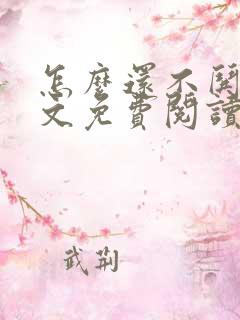 怎麼還不開
文免費閱讀
武荊